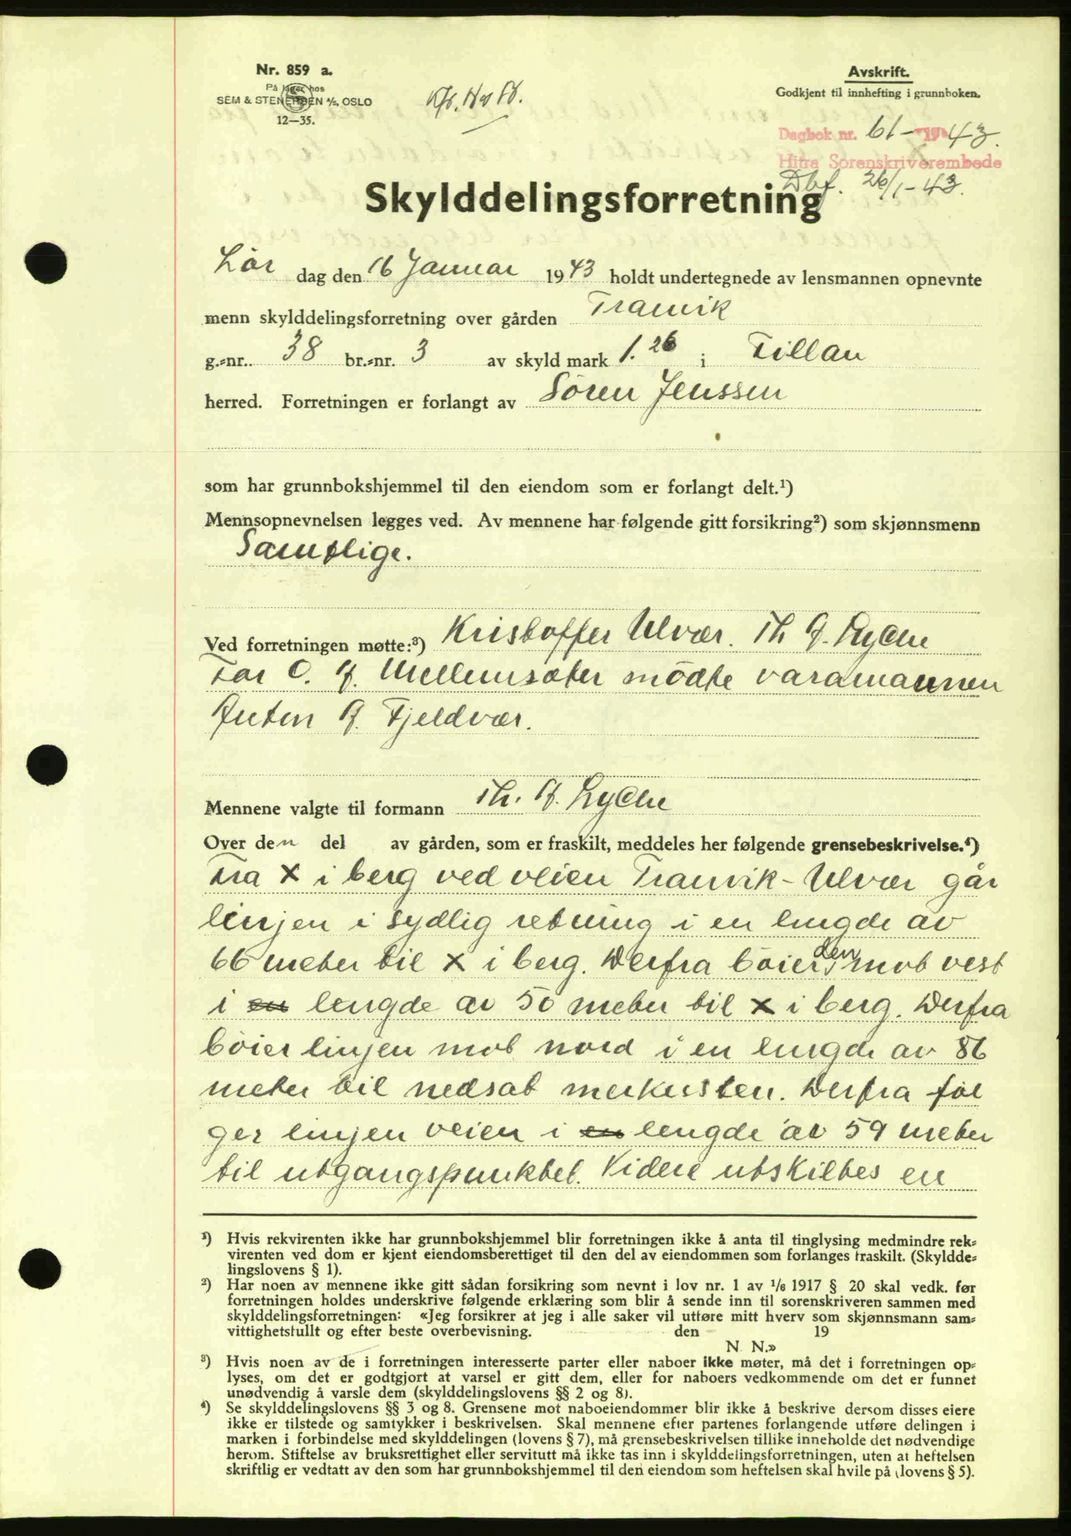 Nr. 859 a.
På lager hos
SEM & STENERSEN A/S, OSLO
12—35.
Avskrift.
Godkjent til innhefting i grunnboken.
Dagbok nr. 61 - 1943.
Hitra Sorenskriverembede
Dbf. 26/1-43.
Skylddelingsforretning
Lör dag den 16 Januar 1943 holdt undertegnede av lensmannen opnevnte
menn skylddelingsforretning over gården Tranvik
g.-nr. 38 br.-nr. 3 av skyld mark 1.26 i Fillan
herred. Forretningen er forlangt av Sören Jenssen
som har grunnbokshjemmel til den eiendom som er forlangt delt.¹)
Mennsopnevnelsen legges ved. Av mennene har følgende gitt forsikring²) som skjønnsmenn
Samtlige.
Ved forretningen møtte:³) Kristoffer Ulvær. Th J. Lyche
For O. J. Mellemsæter mödte varamannen
Anton J. Fjeldvær.
Mennene valgte til formann Th. J. Lyche
Over den del av gården, som er fraskilt, meddeles her følgende grensebeskrivelse.⁴)
Fra X i berg ved veien Tranvik - Ulvær går
linjen i sydlig retning i en lengde av
66 meter til X i berg. Derfra böier den mot vest
i en lengde av 50 meter til X i berg. Derfra
böier linjen mot nord i en lengde av 86
meter til nedsat merkessten. Derfra föl
ger linjen veien i en lengde av 59 meter
til utgangspunktet. Videre utskiltes en
¹) Hvis rekvirenten ikke har grunnbokshjemmel blir forretningen ikke å anta til tinglysing medmindre rek-
virenten ved dom er kjent eiendomsberettiget til den del av eiendommen som forlanges fraskilt. (Skyldde-
lingslovens § 1).
²) Har noen av mennene ikke gitt sådan forsikring som nevnt i lov nr. 1 av 1/6 1917 § 20 skal vedk. før
forretningen holdes underskrive følgende erklæring som blir å sende inn til sorenskriveren sammen med
skylddelingsforretningen: «Jeg forsikrer at jeg i alle saker vil utføre mitt hverv som skjønnsmann sam-
vittighetsfullt og efter beste overbevisning. den 19
N. N.»
³) Hvis noen av de i forretningen interesserte parter eller naboer ikke møter, må det i forretningen op-
lyses, om det er godtgjort at varsel er gitt dem, eller for naboers vedkommende om det er funnet
unødvendig å varsle dem (skylddelingslovens §§ 2 og 8).
⁴) Se skylddelingslovens §§ 3 og 8. Grensene mot naboeiendommer blir ikke å beskrive dersom disses eiere
ikke er tilstede og samtykker i beskrivelsen. Skal mennene efter partenes forlangende utføre delingen i
marken i forbindelse med skylddelingen (lovens § 7), må grensebeskrivelsen tillike inneholde det nødvendige
herom. Stiftelse av bruksrettighet eller servitutt må ikke tas inn i skylddelingsforretningen, uten at heftelsen
skriftlig er vedtatt av den som har grunnbokshjemmel til den eiendom som heftelsen skal hvile på (lovens § 5).